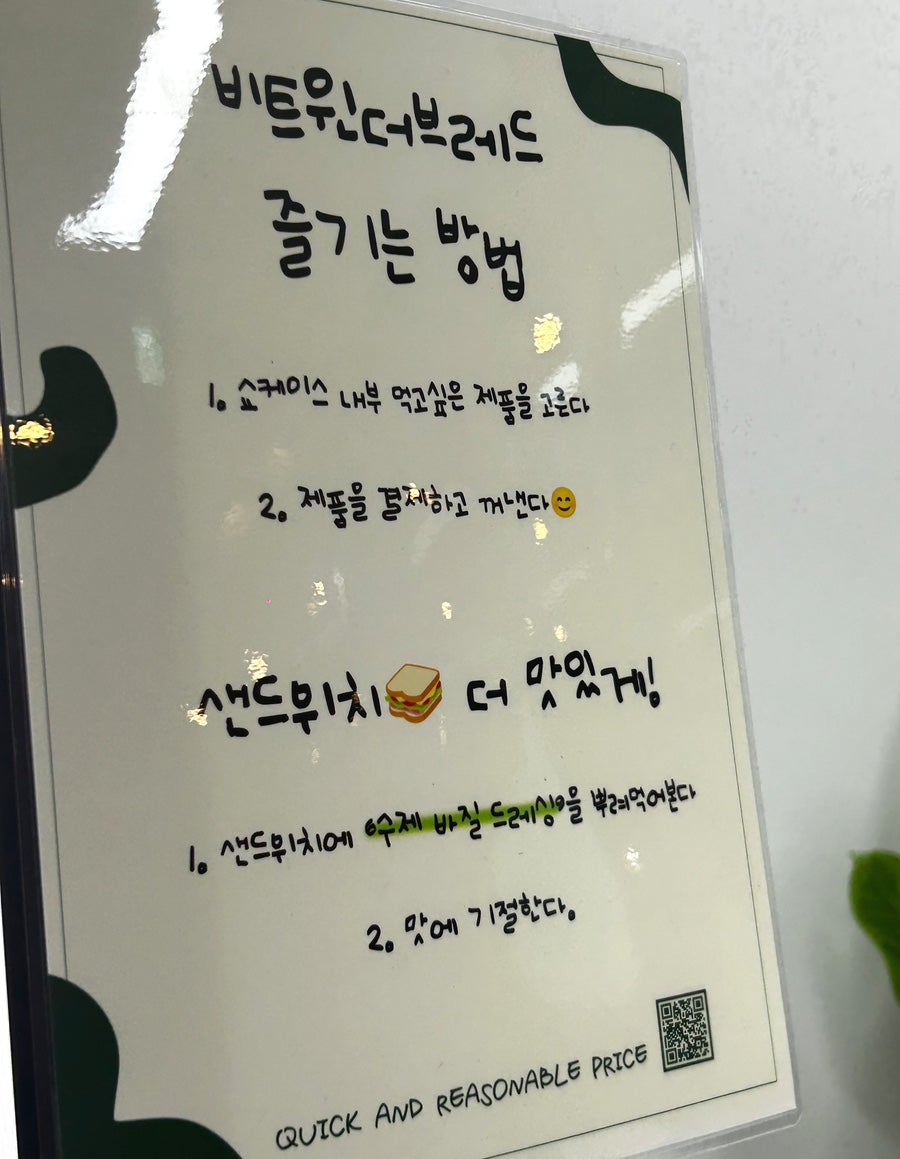 비트윈더브레드
즐기는 방법
1. 쇼케이스 내부 먹고싶은 제품을 고른다
2. 제품을 결제하고 꺼낸다😊
샌드위치🥪 더 맛있게!
1. 샌드위치에 '수제 바질 드레싱'을 뿌려먹어본다
2. 맛에 기절한다.
QUICK AND REASONABLE PRICE